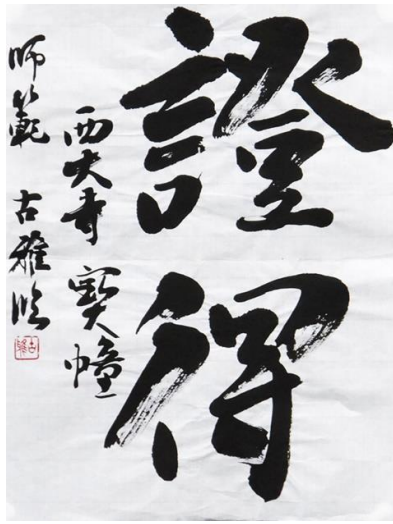 證得
西大寺 寶幢
師範 古雅臨